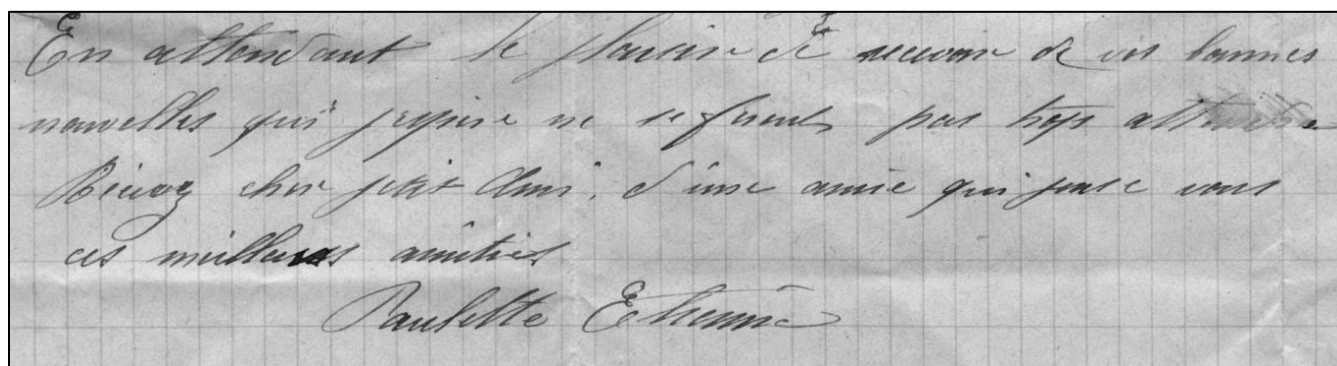 En attendant le plaisir de recevoir de vos bonnes
nouvelles qui j'espère ne se feront pas trop attendre
Recevez cher petit Ami, d'une amie qui pense vous
ces meilleures amitiés
Paulette Etienne